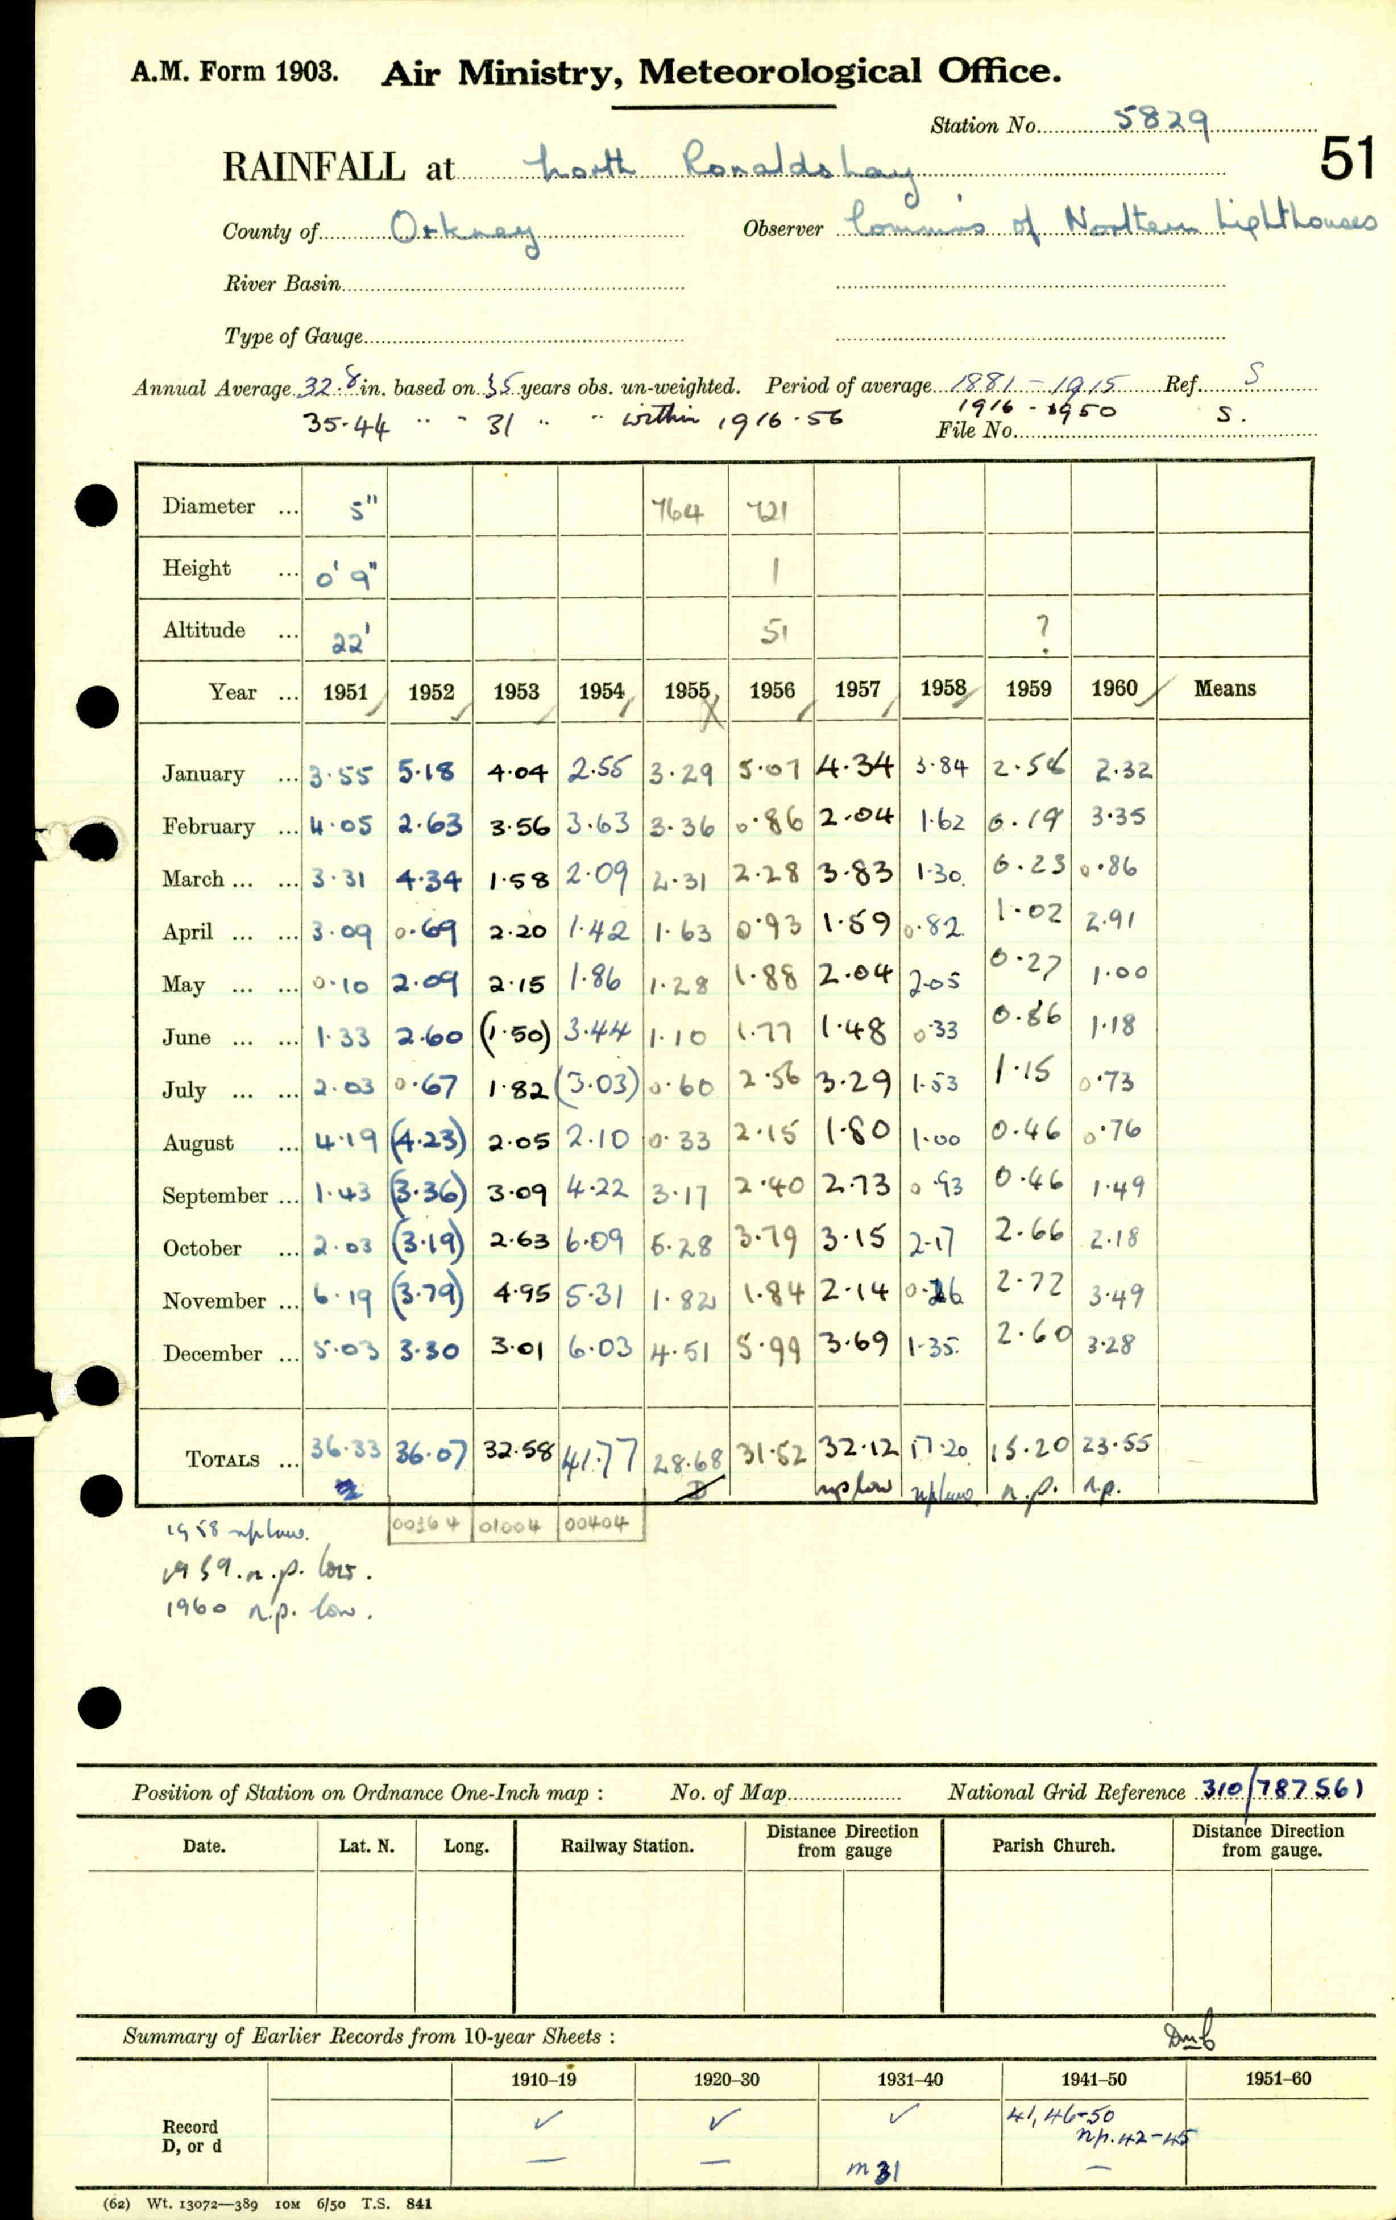 A.M. Form 1903. Air Ministry, Meteorological Office.
Station No. 5829
51
RAINFALL at North Ronaldshay
County of Orkney Observer Commrs of Northern Lighthouses
River Basin
Type of Gauge
Annual Average 32.8 in. based on 35 years obs. un-weighted. Period of average 1881-1915 Ref. S
35.44 " " 31 " " within 1916-56 1916-1950 S.
File No.
Diameter ... 5" 764 721
Height ... 0' 9" 1
Altitude ... 22' 51 ?
Year ... 1951 1952 1953 1954 1955 1956 1957 1958 1959 1960 Means
January ... 3.55 5.18 4.04 2.55 3.29 5.07 4.34 3.84 2.58 2.32
February ... 4.05 2.63 3.56 3.63 3.36 0.86 2.04 1.62 0.19 3.35
March ... ... 3.31 4.34 1.58 2.09 2.31 2.28 3.83 1.30 0.23 0.86
April ... ... 3.09 0.69 2.20 1.42 1.63 0.93 1.59 0.82 1.02 2.91
May ... ... 0.10 2.09 2.15 1.86 1.28 1.88 2.04 2.05 0.27 1.00
June ... ... 1.33 2.60 (1.50) 3.44 1.10 1.77 1.48 0.33 0.86 1.18
July ... ... 2.03 0.67 1.82 (3.03) 0.60 2.56 3.29 1.53 1.15 0.73
August ... 4.19 (4.23) 2.05 2.10 0.33 2.15 1.80 1.00 0.46 0.76
September ... 1.43 (3.36) 3.09 4.22 3.17 2.40 2.73 0.93 0.46 1.49
October ... 2.03 (3.19) 2.63 6.09 5.28 3.79 3.15 2.17 2.66 2.18
November ... 6.19 (3.79) 4.95 5.31 1.82 1.84 2.14 0.26 2.72 3.49
December ... 5.03 3.30 3.01 6.03 4.51 5.99 3.69 1.35 2.60 3.28
TOTALS ... 36.33 36.07 32.58 41.77 28.68 31.52 32.12 17.20 15.20 23.55
D np low np low n.p. n.p.
00364 01004 00404
1958 np low.
1959. n.p. low.
1960 n.p. low.
Position of Station on Ordnance One-Inch map : No. of Map National Grid Reference 310/787561
Date. Lat. N. Long. Railway Station. Distance from gauge Direction Parish Church. Distance from gauge. Direction
Summary of Earlier Records from 10-year Sheets :
1910-19 1920-30 1931-40 1941-50 1951-60
Record ✓ ✓ ✓ 41, 46-50
np. 42-45
D, or d — — m 31 —
(62) Wt. 13072—389 10M 6/50 T.S. 841